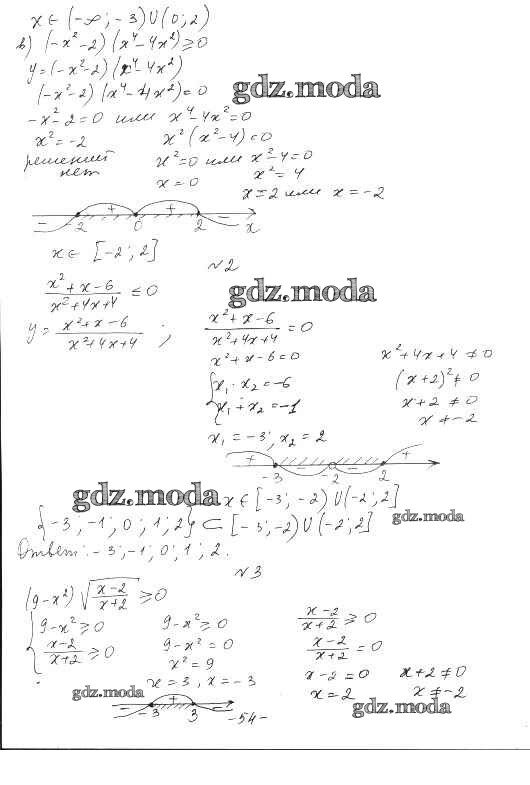 x ∈ (-∞; -3) ∪ (0; 2)
в) (-x²-2)(x⁴-4x²) ≥ 0
y = (-x²-2)(x⁴-4x²)
(-x²-2)(x⁴-4x²) = 0
gdz.moda
-x²-2=0 или x⁴-4x²=0
x² = -2 x²(x²-4)=0
решений нет x²=0 или x²-4=0
x=0 x²=4
x=2 или x=-2
- -2 + 0 + 2 - x
x ∈ [-2; 2]
№2
(x²+x-6)/(x²+4x+4) ≤ 0
gdz.moda
y = (x²+x-6)/(x²+4x+4) ; (x²+x-6)/(x²+4x+4) = 0
x²+x-6=0 x²+4x+4 ≠ 0
{ x₁·x₂=-6 (x+2)² ≠ 0
x₁+x₂=-1 x+2 ≠ 0
x ≠ -2
x₁=-3; x₂=2
+ -3 - -2 - 2 +
gdz.moda x ∈ [-3; -2) ∪ (-2; 2]
{-3; -1; 0; 1; 2} ⊂ [-3; -2) ∪ (-2; 2]
gdz.moda
Ответ: -3; -1; 0; 1; 2.
№3
(9-x²) √((x-2)/(x+2)) ≥ 0
{ 9-x² ≥ 0 9-x² ≥ 0 (x-2)/(x+2) ≥ 0
(x-2)/(x+2) ≥ 0 9-x² = 0 (x-2)/(x+2) = 0
x² = 9 x-2=0 x+2 ≠ 0
x=3, x=-3 x=2 x ≠ -2
gdz.moda
gdz.moda
- -3 + 3 -
-54-